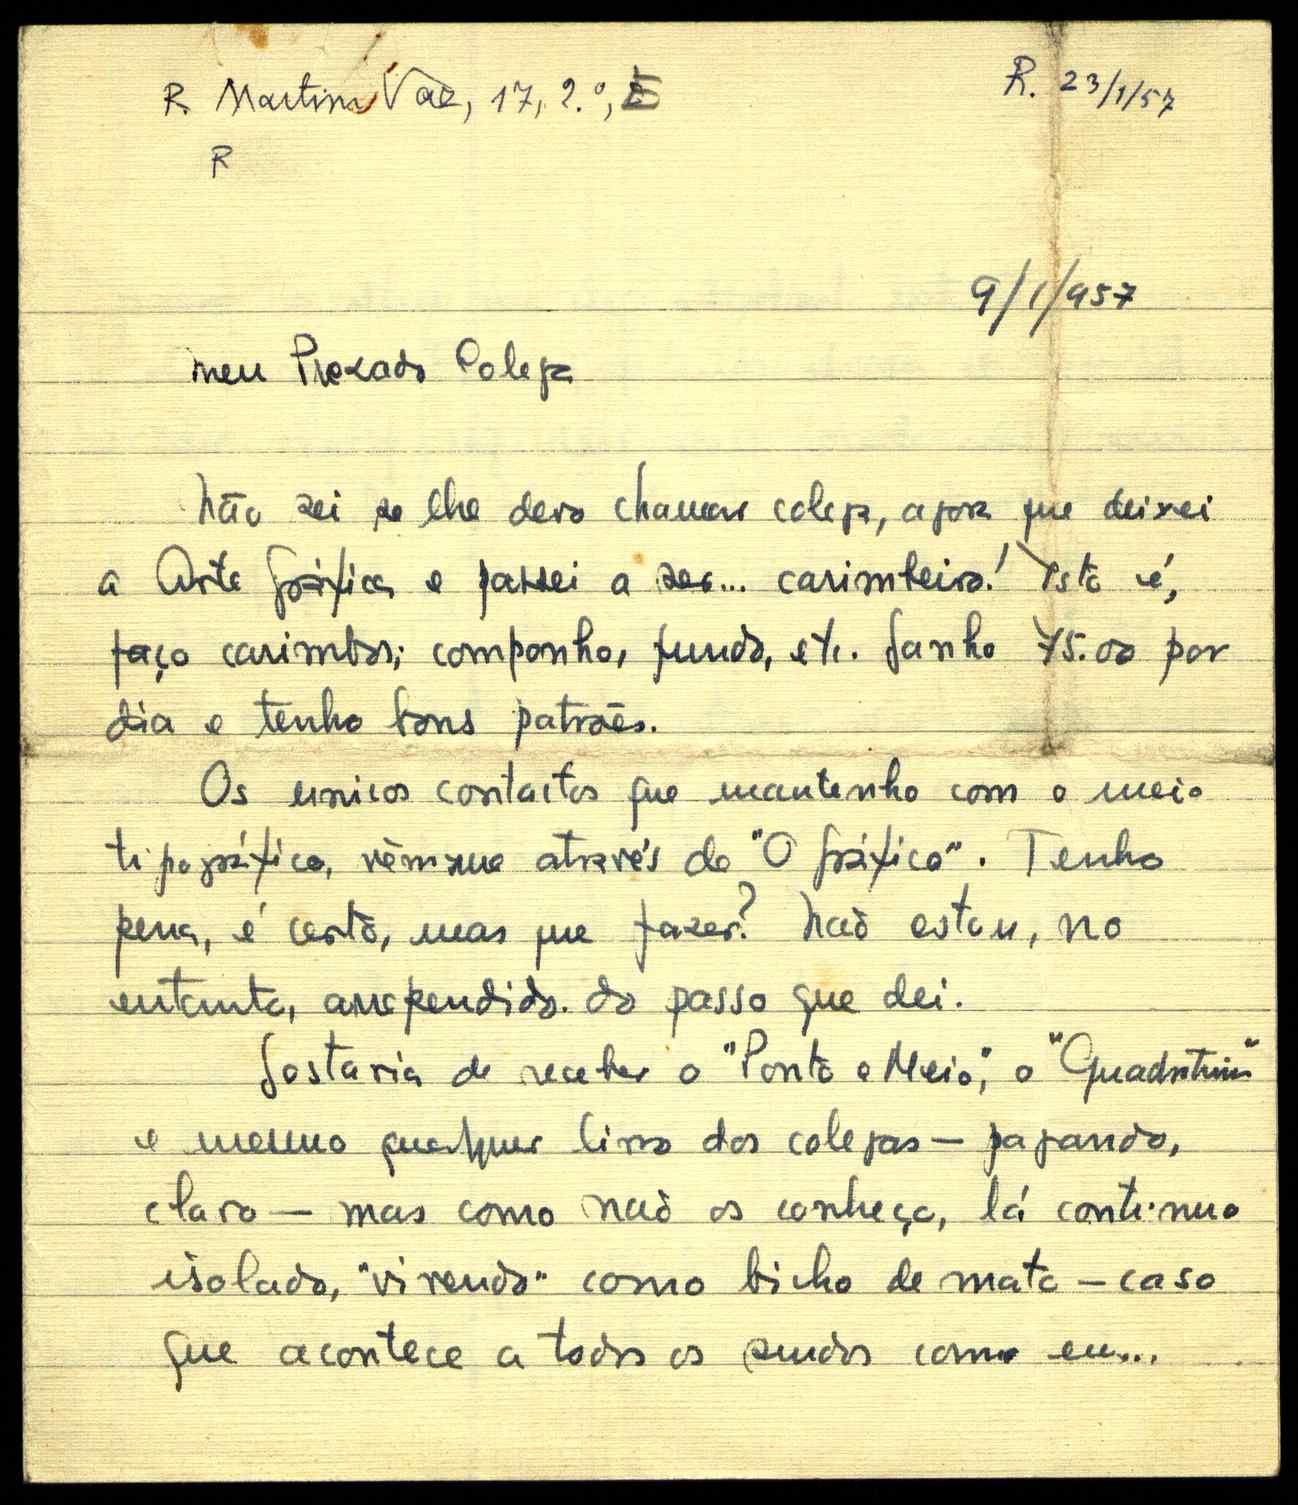 R. Martim Vaz, 17, 2.º, E
R. 23/1/57
R
9/1/957
Meu Prezado Colega
Não sei se lhe devo chamar colega, agora que deixei
a Arte Gráfica e passei a ser... carimbeiro! Isto é,
faço carimbos; componho, fundo, etc. Ganho 45.00 por
dia e tenho bons patrões.
Os unicos contactos que mantenho com o meio
tipográfico, vêm-me através de "O Gráfico". Tenho
pena, é certo, mas que fazer? Não estou, no
entanto, arrependido. do passo que dei.
Gostaria de receber o "Ponto e Meio", o "Quadratim"
e mesmo qualquer livro dos colegas — pagando,
claro — mas como não os conheço, lá continuo
isolado, "vivendo" como bicho de mato — caso
que acontece a todos os surdos como eu...